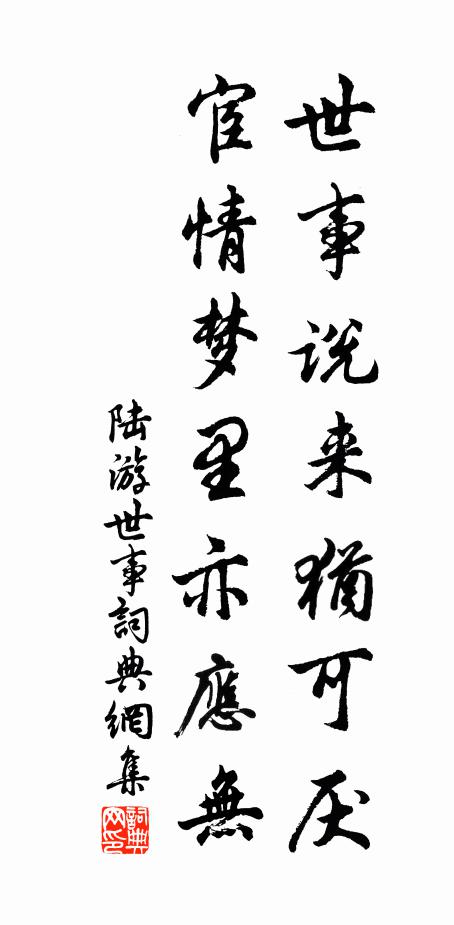 世事说来猶可厌
宦情梦里亦應無
陆游世事詞典網集
詞典网印